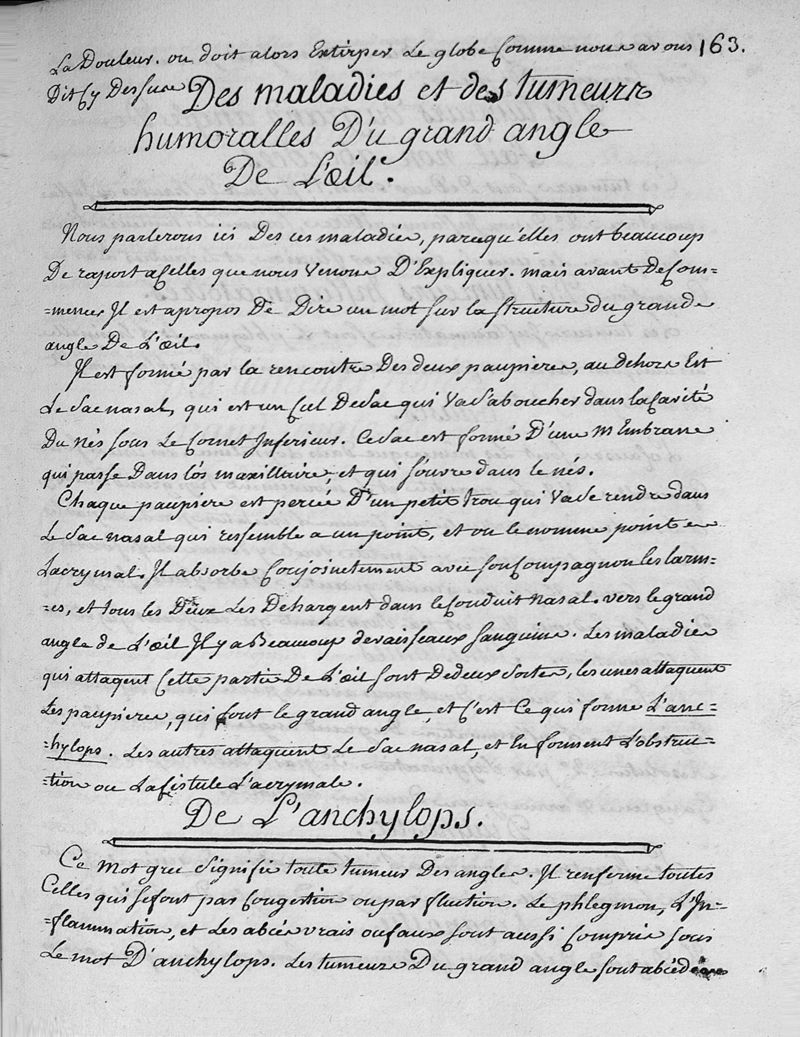 La Douleur. on doit alors Extirper Le globe Comme nous avons 163.
Dit Cy Dessus
Des maladies et des tumeurs
humoralles Du grand angle
De L'œil.
Nous parlerons ici Des ces maladies, parcequ'elles ont beaucoup
De raport a Celles que nous Venons D'Expliquer. mais avant De Com-
-mencer Il est apropos De Dire un mot sur la structure du grand
angle De L'œil.
Il est formé par la rencontre Des deux paupieres, au dehors Est
Le Sac nasal, qui est un Cul De Sac qui Va S'aboucher dans la Cavité
Du Nés sous Le Cornet Inferieur. Ce Sac est formé D'une MEmbrane
qui passe Dans l'ôs maxillaire, et qui s'ouvre dans le nés.
Chaque paupiere est percée D'un petit trou qui Va Se rendre dans
Le Sac nasal qui ressemble a un point, et on le nomme points
Lacrymal. Il absorbe Conjointement avec son Compagnon les larm-
-es, et tous les Deux Les Dehargent dans le Conduit Nasal. vers le grand
angle de L'œil Il y a Beaucoup de vaisseaux sanguins. Les maladies
qui attaquent Cette partie De L'œil sont De deux sortes, les unes attaquent
Les paupieres, qui font le grand angle, et C'est Ce qui forme L'anc-
-hylops. Les autres attaquent Le Sac nasal, et En forment L'obstruc-
-tion ou La fistule Lacrymale.
De L'anchylops.
Ce Mot grec signifie toute tumeur Des angles. Il renferme toutes
Celles qui se font par Congestion ou par fluction. Le phlegmon, L'In-
-flammation, et Les abcés vrais ou faux sont aussi Compris sous
Le mot D'anchylops. Les tumeurs Du grand angle sont abcéd